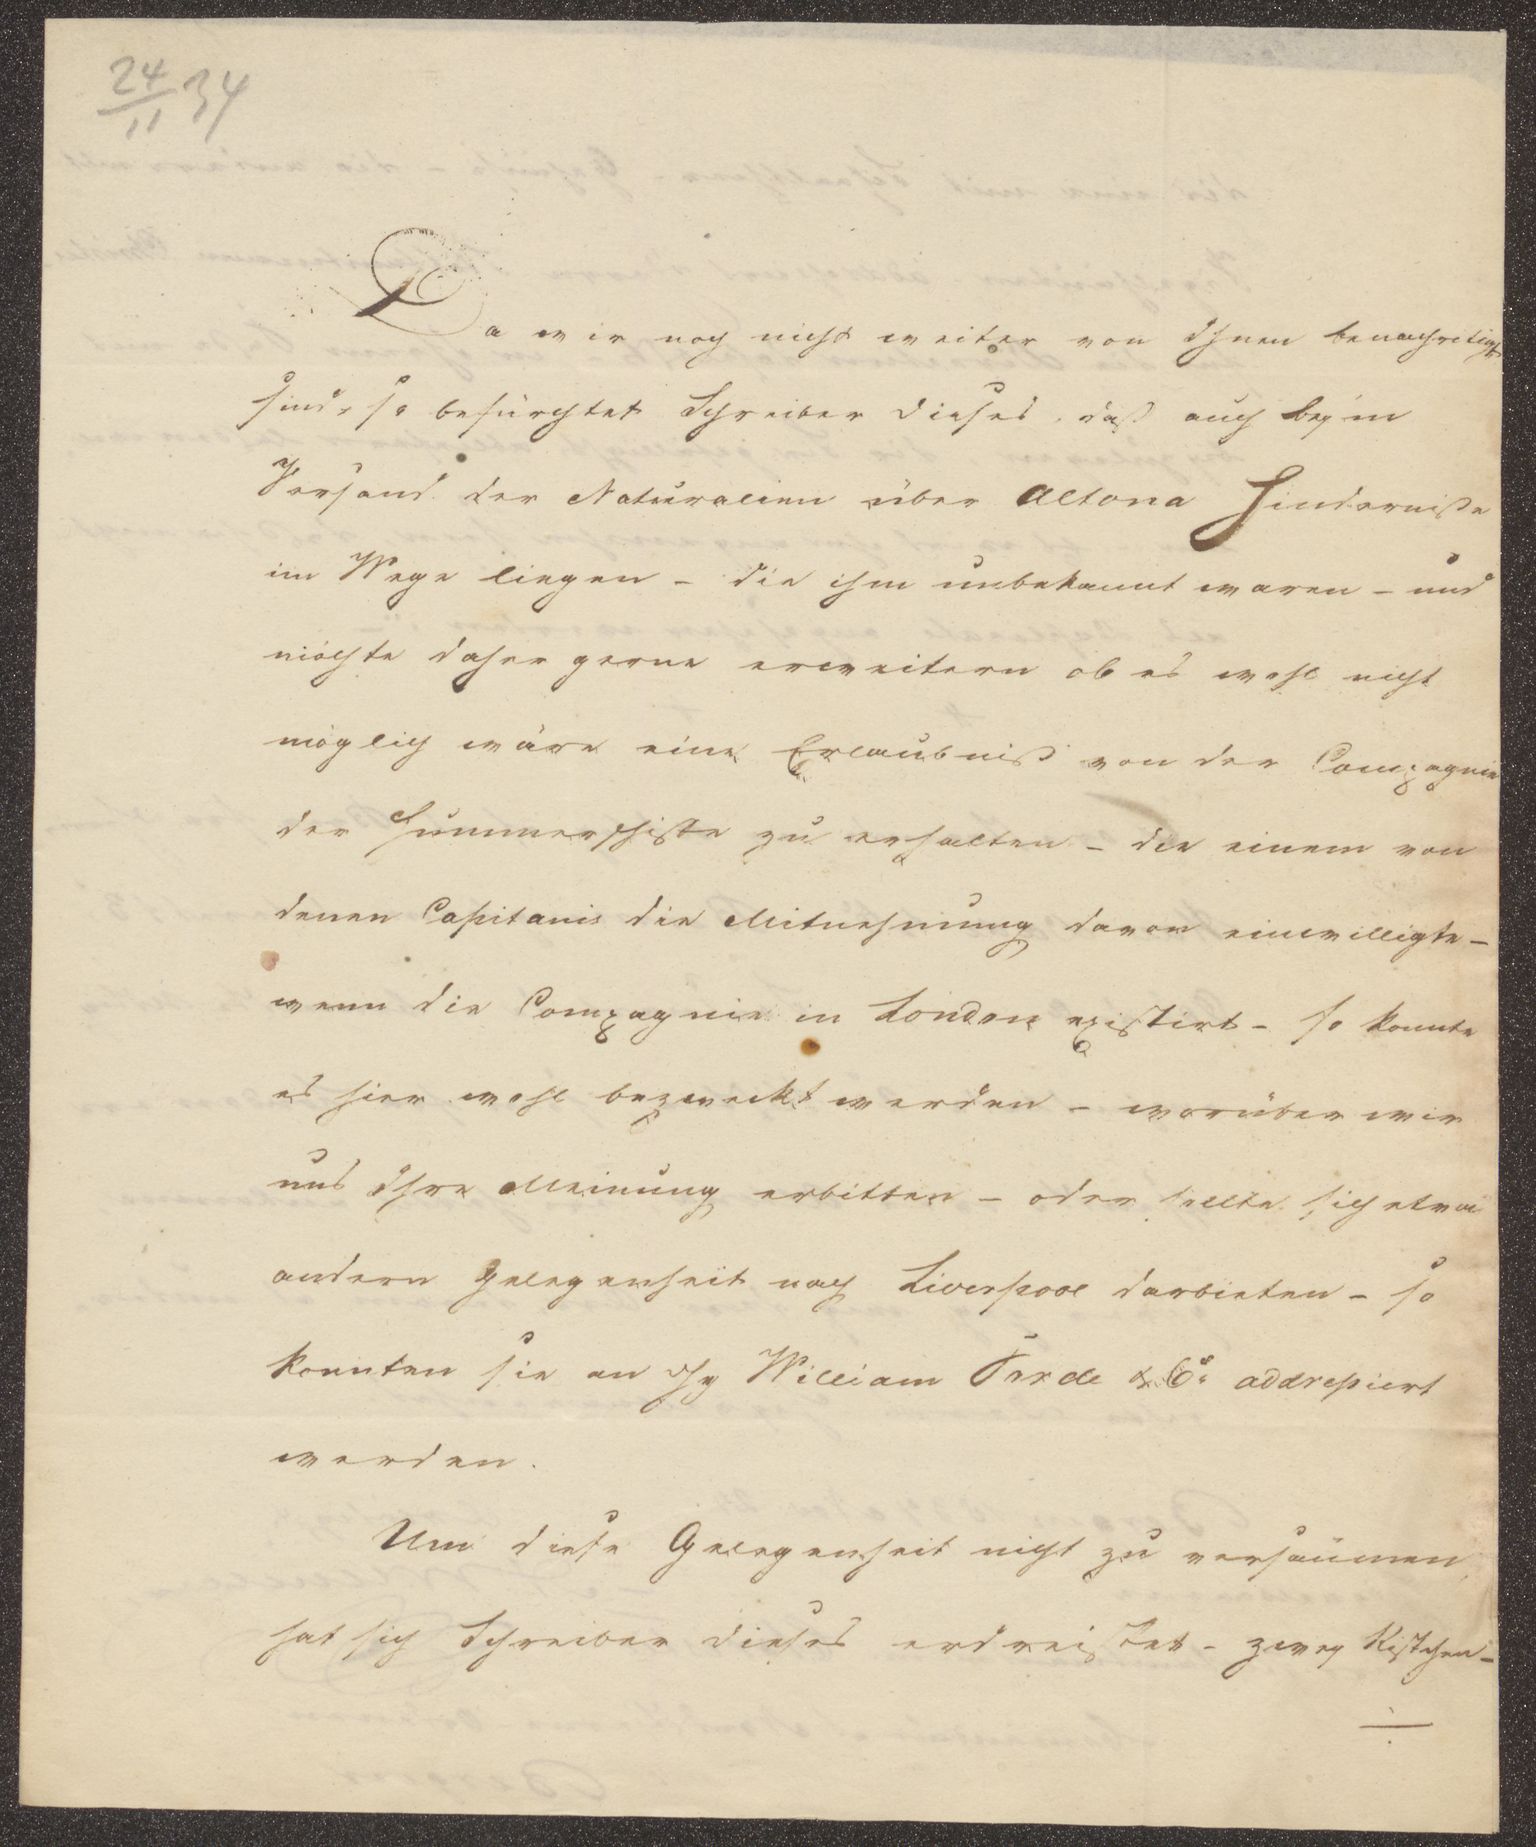 24/11 34
Da wir noch nicht weiter von Ihnen benachrichtigt
sind, so befürchtet Schreiber dieses, daß auch bey'm
Versand der Naturalien über Altona Hinderniße
im Wege liegen – die ihm unbekannt waren – und
möchte daher gerne erweitern ob es wohl nicht
möglich wäre eine Erlaubniß von der Compagnie
der Hummerschiffe zu erhalten – die einem von
denen Capitanis die Mitnehmung davon einwilligte –
wenn die Compagnie in London existirt – so konnte
es hier wohl bezweckt werden – worüber wir
uns Ihre Meinung erbitten – oder sollte sich etwa
andern Gelegenheit nach Liverpool darbieten – so
konnten sie an William & Co. addressiert
werden.
Um diese Gelegenheit nicht zu versäumen
hat sich Schreiber dieses erdreistet – zwey Kistchen –